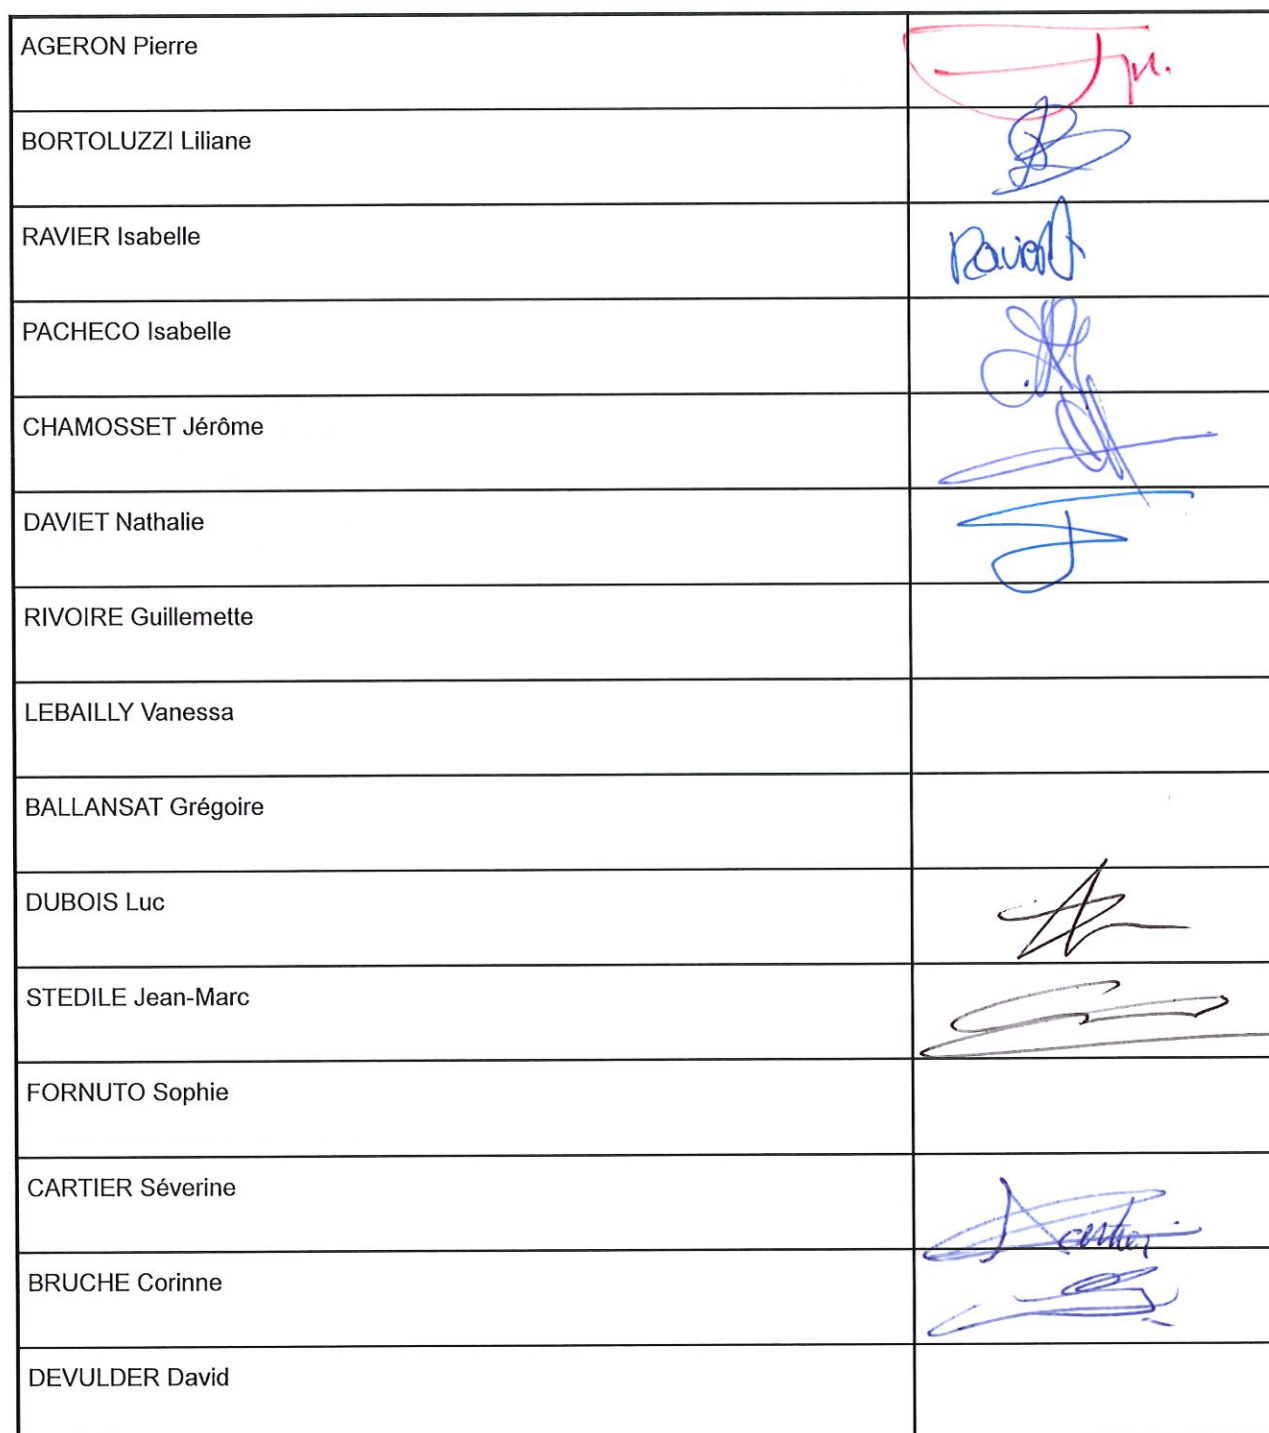 AGERON Pierre
BORTOLUZZI Liliane
RAVIER Isabelle
Ravier
PACHECO Isabelle
CHAMOSSET Jérôme
DAVIET Nathalie
RIVOIRE Guillemette
LEBAILLY Vanessa
BALLANSAT Grégoire
DUBOIS Luc
STEDILE Jean-Marc
FORNUTO Sophie
CARTIER Séverine
BRUCHE Corinne
DEVULDER David